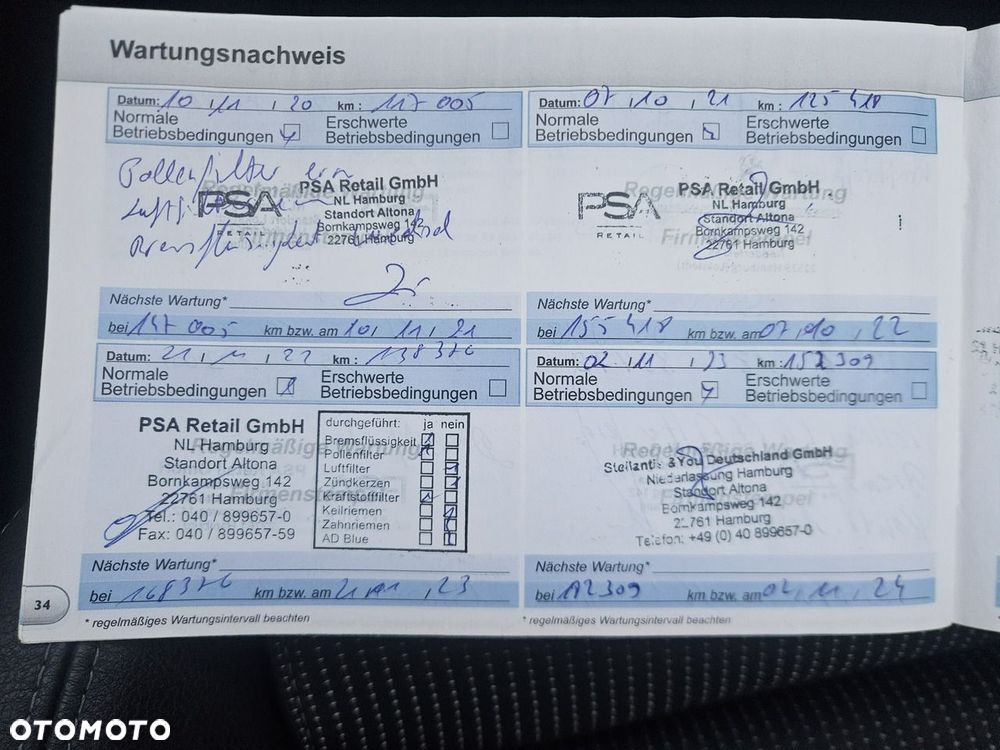 Wartungsnachweis
Datum: 10 . 11 . 20 km : 117 005
Normale
Betriebsbedingungen
Erschwerte
Betriebsbedingungen
Pollenfilter ern
PSA
RETAIL
PSA Retail GmbH
NL Hamburg
Standort Altona
Bornkampsweg 142
22761 Hamburg
Nächste Wartung*
bei 147 005 km bzw. am 10. 11. 21
Datum: 07 . 10 . 21 km : 125 418
Normale
Betriebsbedingungen
Erschwerte
Betriebsbedingungen
Regelmäßige Wartung
PSA
RETAIL
PSA Retail GmbH
NL Hamburg
Standort Altona
Bornkampsweg 142
22761 Hamburg
Nächste Wartung*
bei 155 418 km bzw. am 07. 10 . 22
Datum: 21 . 11 . 22 km : 138376
Normale
Betriebsbedingungen
Erschwerte
Betriebsbedingungen
PSA Retail GmbH
NL Hamburg
Standort Altona
Bornkampsweg 142
22761 Hamburg
Tel.: 040 / 899657-0
Fax: 040 / 899657-59
durchgeführt: ja nein
Bremsflüssigkeit
Pollenfilter
Luftfilter
Zündkerzen
Kraftstofffilter
Keilriemen
Zahnriemen
AD Blue
Nächste Wartung*
bei 168376 km bzw. am 21. 11 . 23
Datum: 02 . 11 . 23 km : 152 309
Normale
Betriebsbedingungen
Erschwerte
Betriebsbedingungen
Stellantis &You Deutschland GmbH
Niederlassung Hamburg
Standort Altona
Bornkampsweg 142
22761 Hamburg
Telefon: +49 (0) 40 899657-0
Nächste Wartung*
bei km bzw. am 02. 11. 24
34
* regelmäßiges Wartungsintervall beachten
* regelmäßiges Wartungsintervall beachten
OTOMOTO